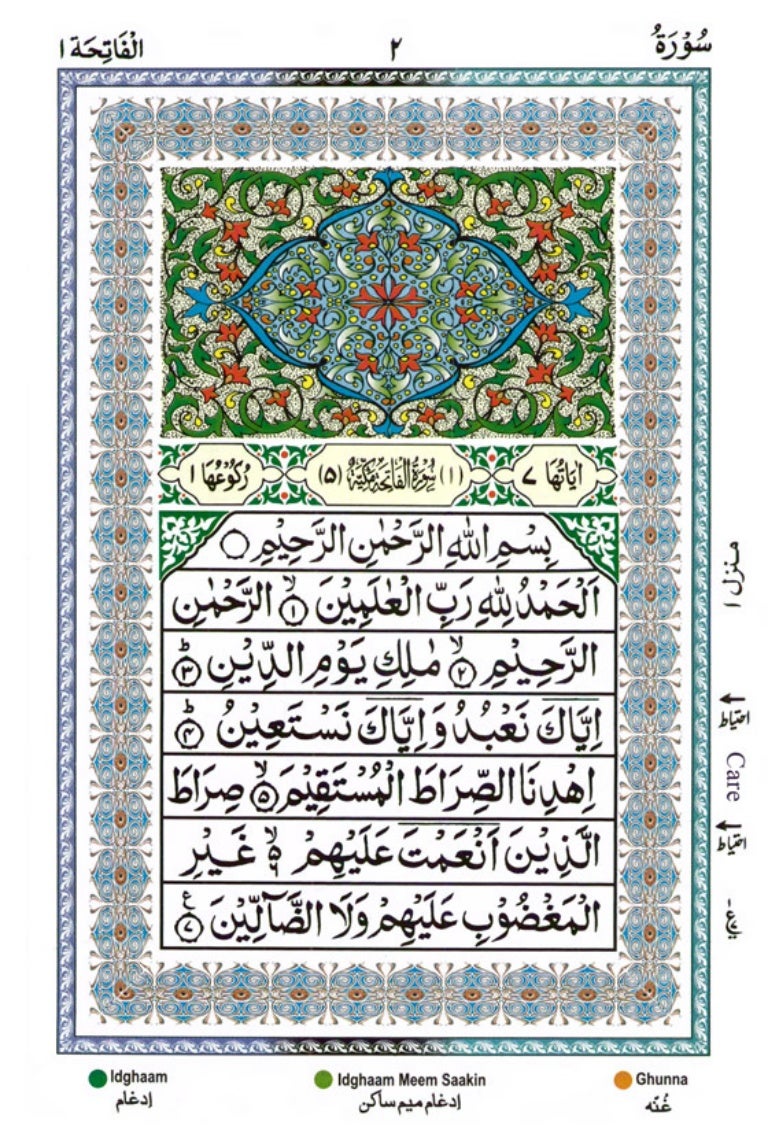 سُوْرَةُ ٢ الْفَاتِحَة ١
اٰيَاتُهَا ٧ (١) سُوْرَةُ الْفَاتِحَةِ مَكِّيَّةٌ (٥) رُكُوْعُهَا ١
بِسْمِ اللّٰهِ الرَّحْمٰنِ الرَّحِيْمِ ۝
اَلْحَمْدُ لِلّٰهِ رَبِّ الْعٰلَمِيْنَ ۙ﴿١﴾ الرَّحْمٰنِ
الرَّحِيْمِ ۙ﴿٢﴾ مٰلِكِ يَوْمِ الدِّيْنِ ؕ﴿٣﴾
اِيَّاكَ نَعْبُدُ وَ اِيَّاكَ نَسْتَعِيْنُ ؕ﴿٤﴾
اِهْدِنَا الصِّرَاطَ الْمُسْتَقِيْمَ ۙ﴿٥﴾ صِرَاطَ
الَّذِيْنَ اَنْعَمْتَ عَلَيْهِمْ ۙ۬ ٦ غَيْرِ
الْمَغْضُوْبِ عَلَيْهِمْ وَلَا الضَّآلِّيْنَ ﴿٧﴾ ع
منزل ١
احتیاط
Care
احتیاط
Idghaam
إدغام
Idghaam Meem Saakin
إدغام ميم ساكن
Ghunna
غُنّه